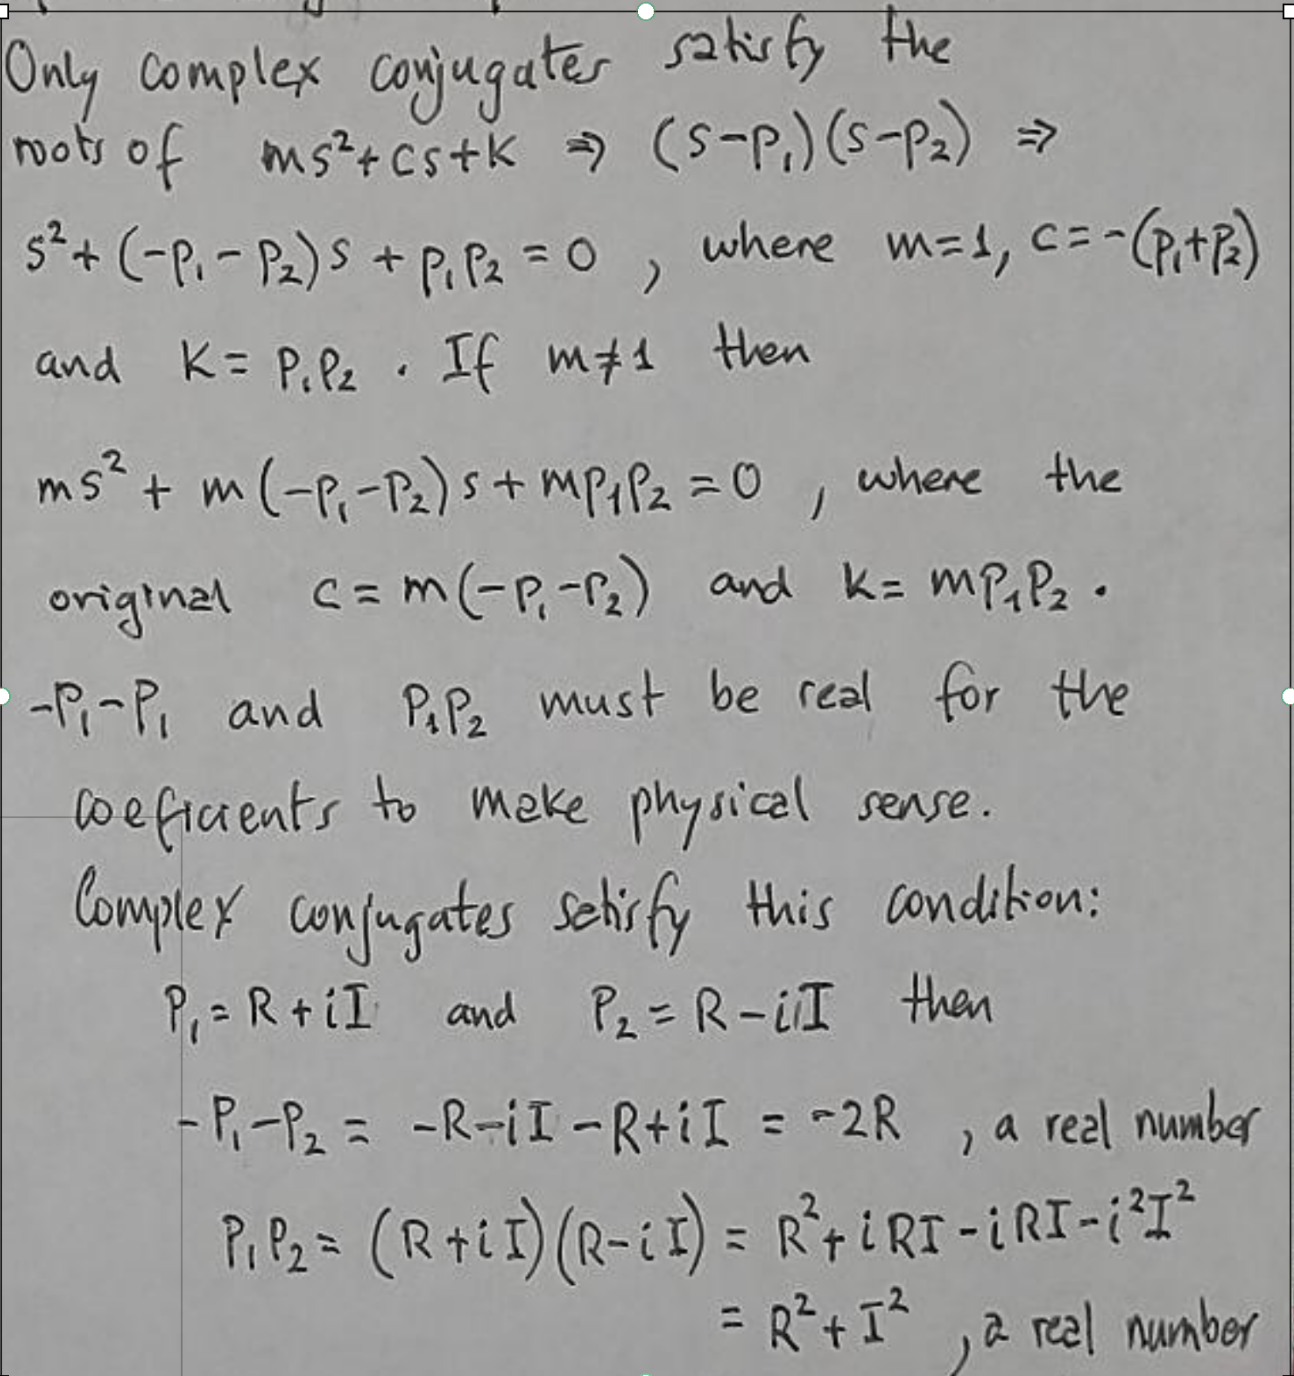 Only complex conjugates satisfy the
roots of ms²+cs+k ⇒ (s-p₁)(s-p₂) ⇒
s²+(-p₁-p₂)s+p₁p₂=0, where m=1, c=-(p₁+p₂)
and k=p₁p₂. If m≠1 then
ms²+m(-p₁-p₂)s+mp₁p₂=0, where the
original c=m(-p₁-p₂) and k=mp₁p₂.
-p₁-p₁ and p₁p₂ must be real for the
coeficients to make physical sense.
Complex conjugates satisfy this condition:
p₁=R+iI and p₂=R-iI then
-p₁-p₂=-R-iI-R+iI=-2R, a real number
p₁p₂=(R+iI)(R-iI)=R²+iRI-iRI-i²I²
=R²+I², a real number